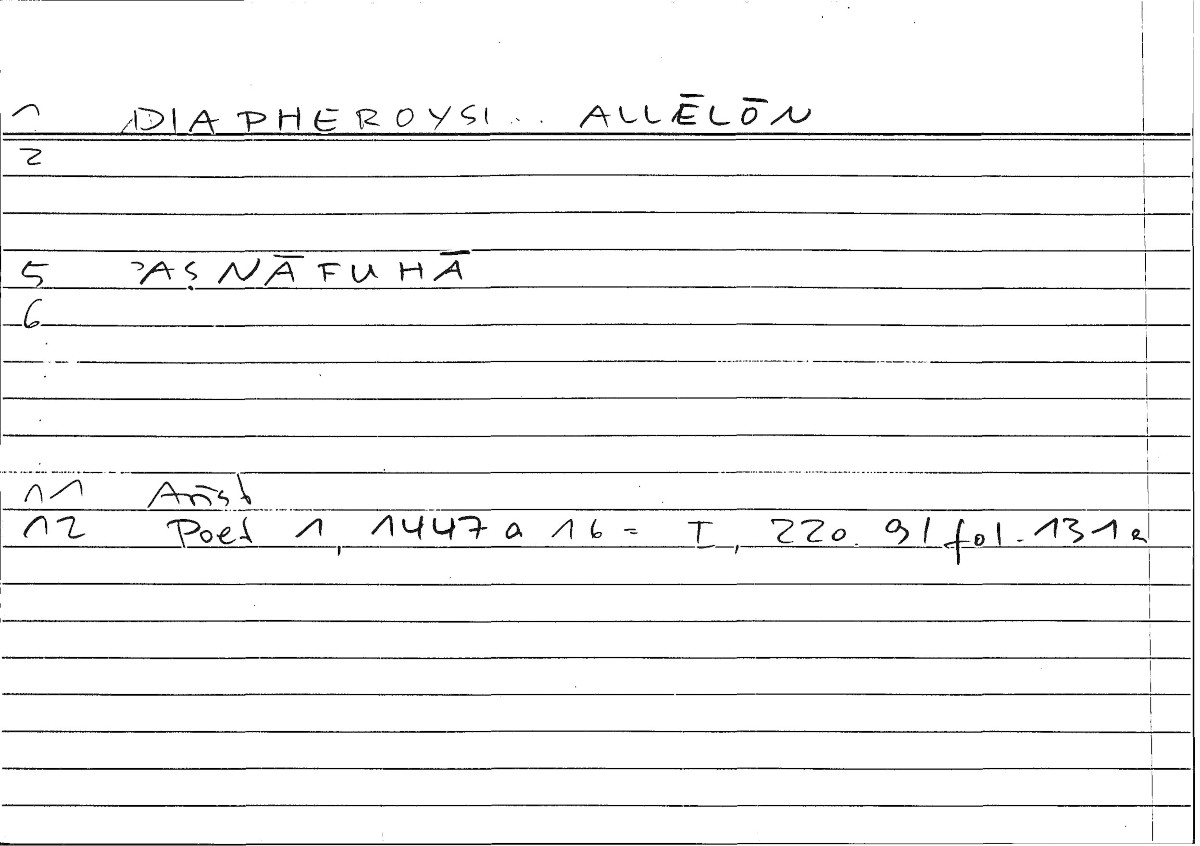 1 DIAPHEROYSI... ALLĒLŌN
2
5 ʾAṢNĀFUHĀ
6
11 Arist
12 Poet 1, 1447 a 16 = I, 220.9/fol. 131a